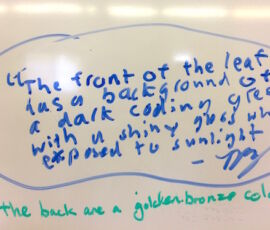 "The front of the leaf
has a background of
a dark coding gree
with a shiny gloss wh
exposed to sunlight
the back are a golden-bronze colo